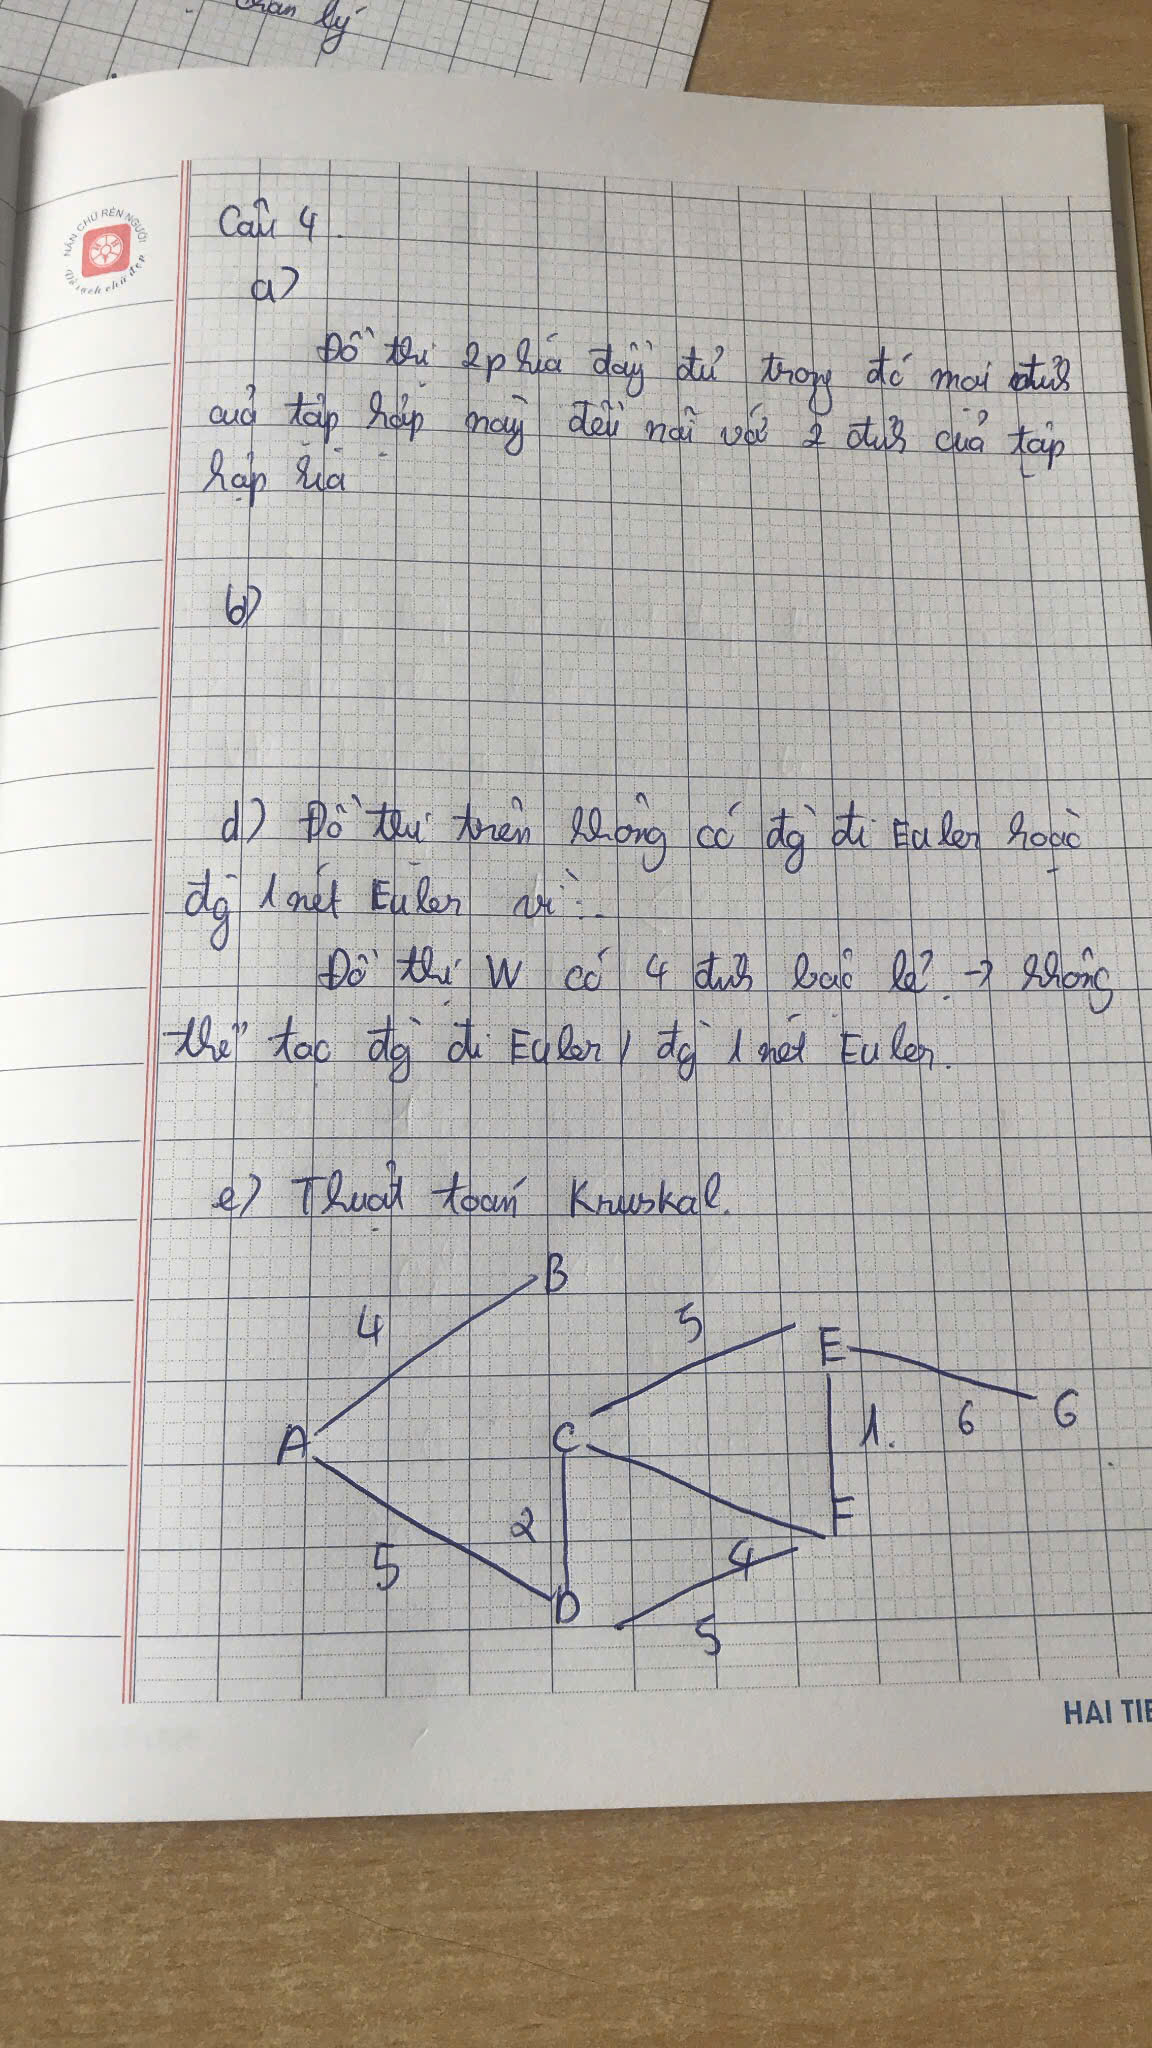 chân lý
NẮN CHỮ RÈN NGƯỜI
Vở sạch chữ đẹp
Câu 4.
a)
Đồ thị 2 phía đầy đủ trong đó mọi đỉnh
của tập hợp này đều nối với 2 đỉnh của tập
hợp kia
b)
d) Đồ thị trên không có đg đi Euler hoặc
đg 1 nét Euler vì:
Đồ thị W có 4 đỉnh bậc lẻ → không
thể tạo đg đi Euler / đg 1 nét Euler.
e) Thuật toán Kruskal.
B
4
5
E
A
C
1.
6
G
2
F
5
4
D
5
HẢI TIẾ